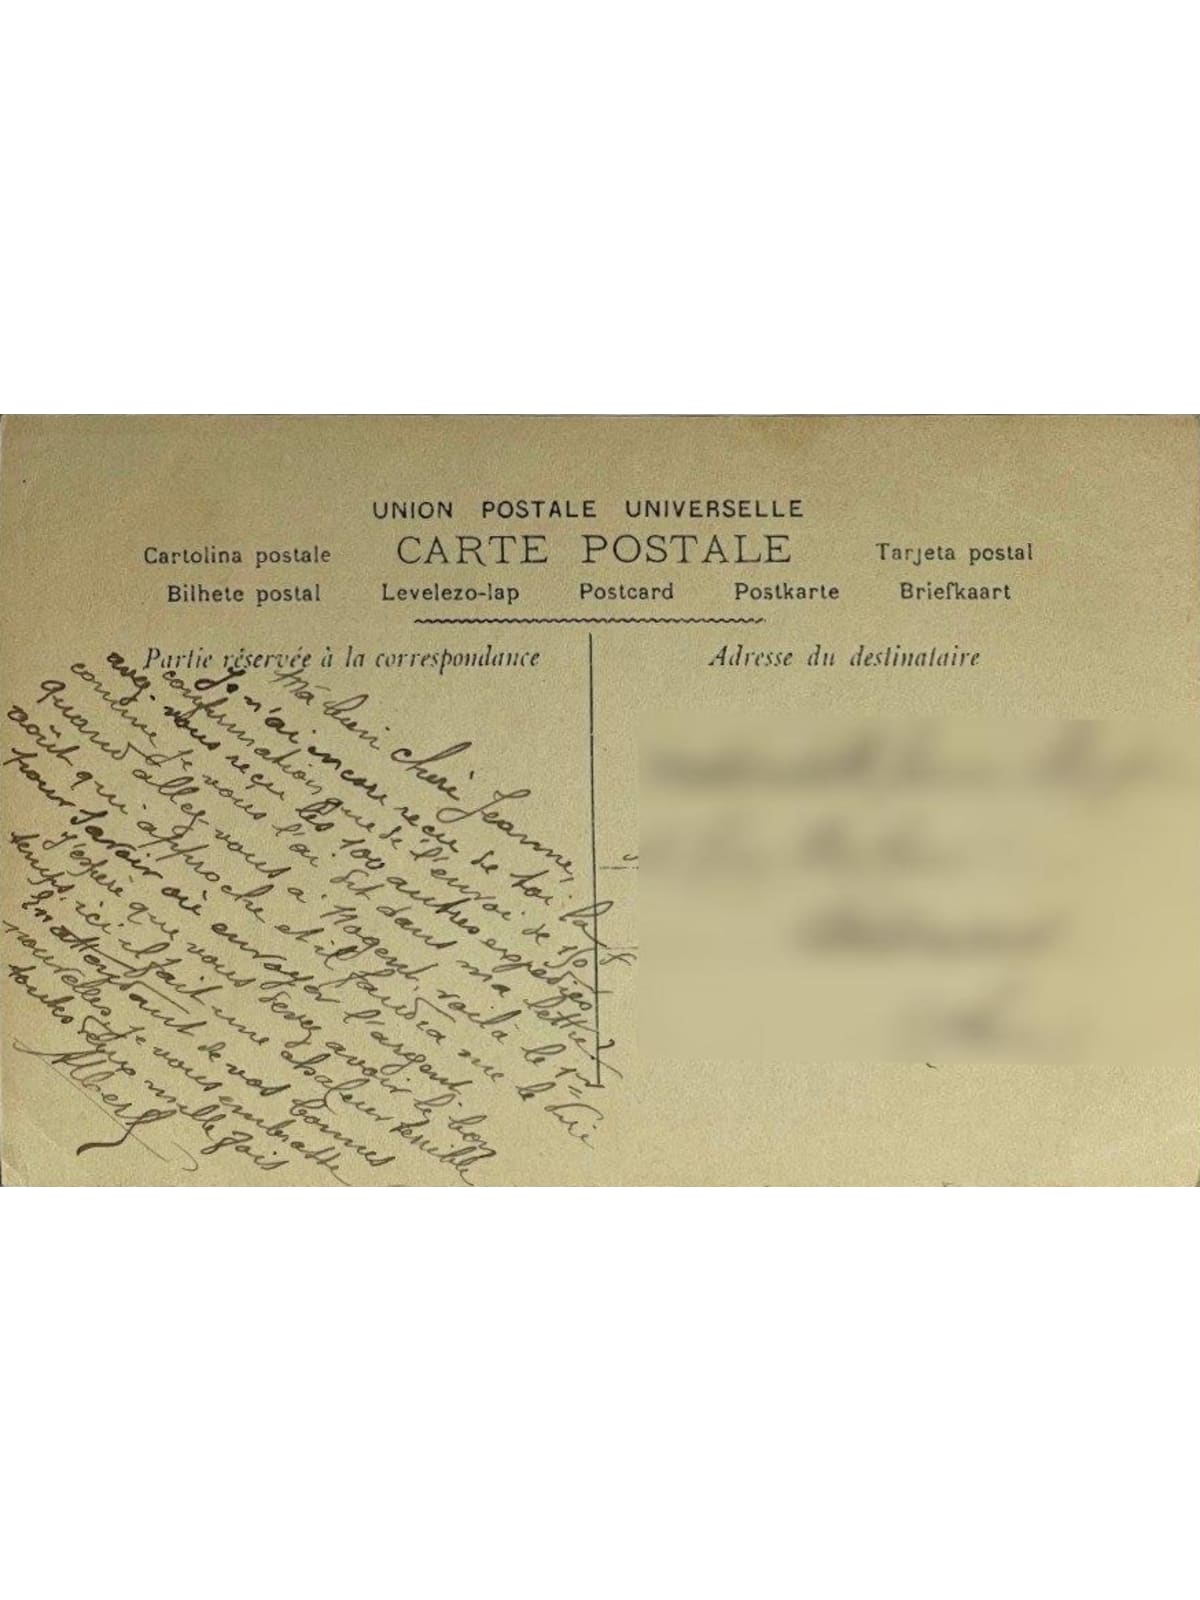 UNION POSTALE UNIVERSELLE
Cartolina postale CARTE POSTALE Tarjeta postal
Bilhete postal Levelezo-lap Postcard Postkarte Briefkaart
Partie réservée à la correspondance
Adresse du destinataire
Ma bien chère Jeanne,
Je n'ai encore reçu de toi la
confirmation que de l'envoi de 150
avez-vous reçu les 100 autres expédiés
comme je vous l'ai dit dans ma lettre?
quand allez vous a Nogent, voilà le 1er
août qui approche et il faudra me le
pour savoir où envoyer l'argent.
J'espère que vous devez avoir le bon
temps, ici il fait une chaleur terrible
En attendant de vos bonnes
nouvelles, je vous embrasse
toutes deux mille fois
Albert